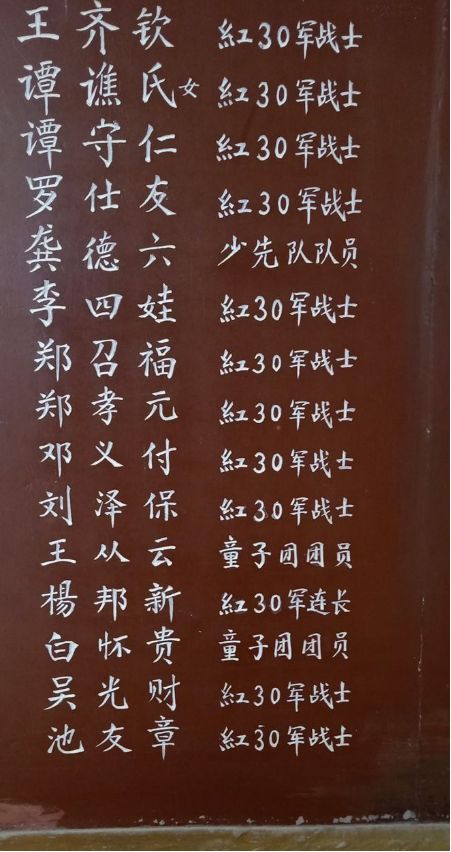 王齐钦 紅30军战士
谭谯氏女 紅30军战士
谭守仁 紅30军战士
罗仕友 紅30军战士
龚德六 少先队队员
李四娃 紅30军战士
郑召福 紅30军战士
郑孝元 紅30军战士
邓义付 紅30军战士
刘泽保 紅30军战士
王从云 童子团团员
楊邦新 紅30军连长
白怀贵 童子团团员
吴光财 紅30军战士
池友章 紅30军战士